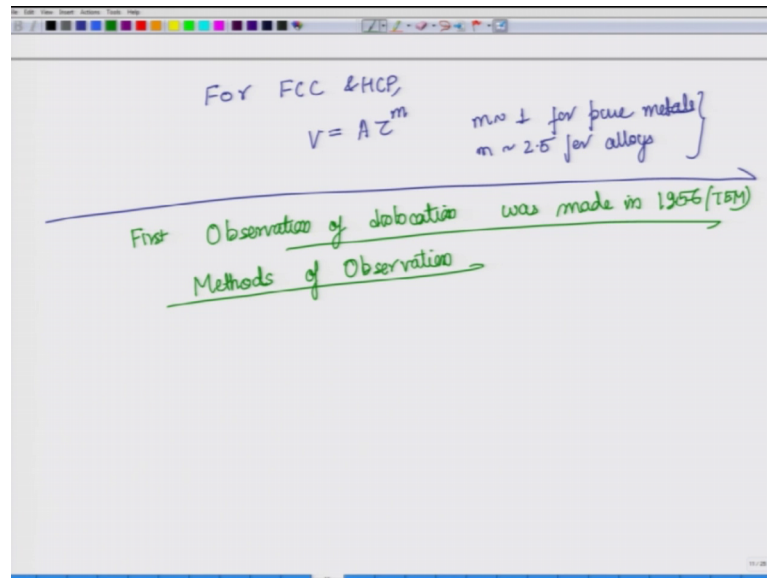 File Edit View Insert Actions Tools Help
For FCC & HCP,
V = A τ^m
m ~ 1 for pure metals
m ~ 2.5 for alloys
First Observation of dislocation was made in 1956 (TEM)
Methods of Observation